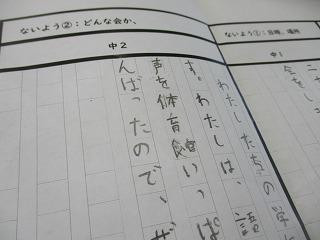 ないよう①：日時、場所
中1
ないよう②：どんな会か、
中2
わたしたちの学
す。わたしは、
声を体育館いっぱ
んばったので、ぜ